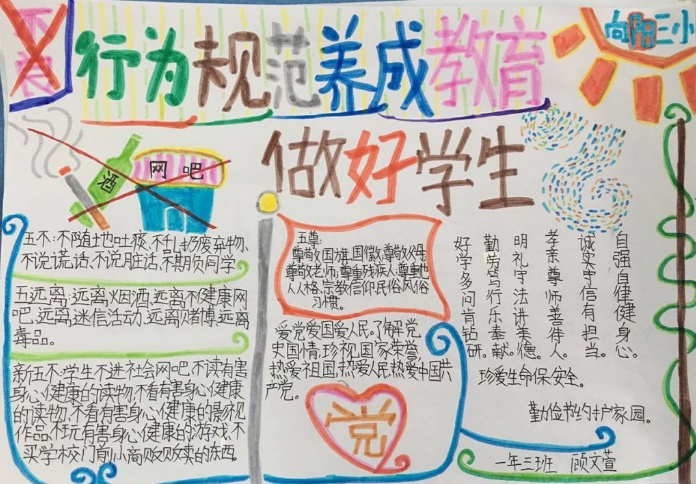 不良
行为规范养成教育
向阳三小
做好学生
酒
网吧
五不:不随地吐痰、不乱扔废弃物、
不说谎话、不说脏话、不期负同学
五远离,远离烟酒、远离不健康网
吧、远离迷信活动、远离赌博、远离
毒品。
新五不:学生不进社会网吧、不读有害
身心健康的读物、不看有害身心健康
的读物、不看有害身心健康的影视
作品、不玩有害身心健康的游戏、不
买学校门前小商贩贩卖的东西。
五尊:
尊敬国旗、国徽;尊敬父母
尊敬老师;尊重残疾人;尊重他
人人格、宗教信仰、民俗风俗
习惯。
爱党爱国爱人民。了解党
史国情,珍视国家荣誉,
热爱祖国,热爱人民,热爱中国共
产党。
党
好学多问肯钻研。
勤劳笃行乐奉献。
明礼守法讲美德。
孝亲尊师善待人。
诚实守信有担当。
自强自律健身心。
珍爱生命保安全。
勤俭节约护家园。
一年三班 顾文萱